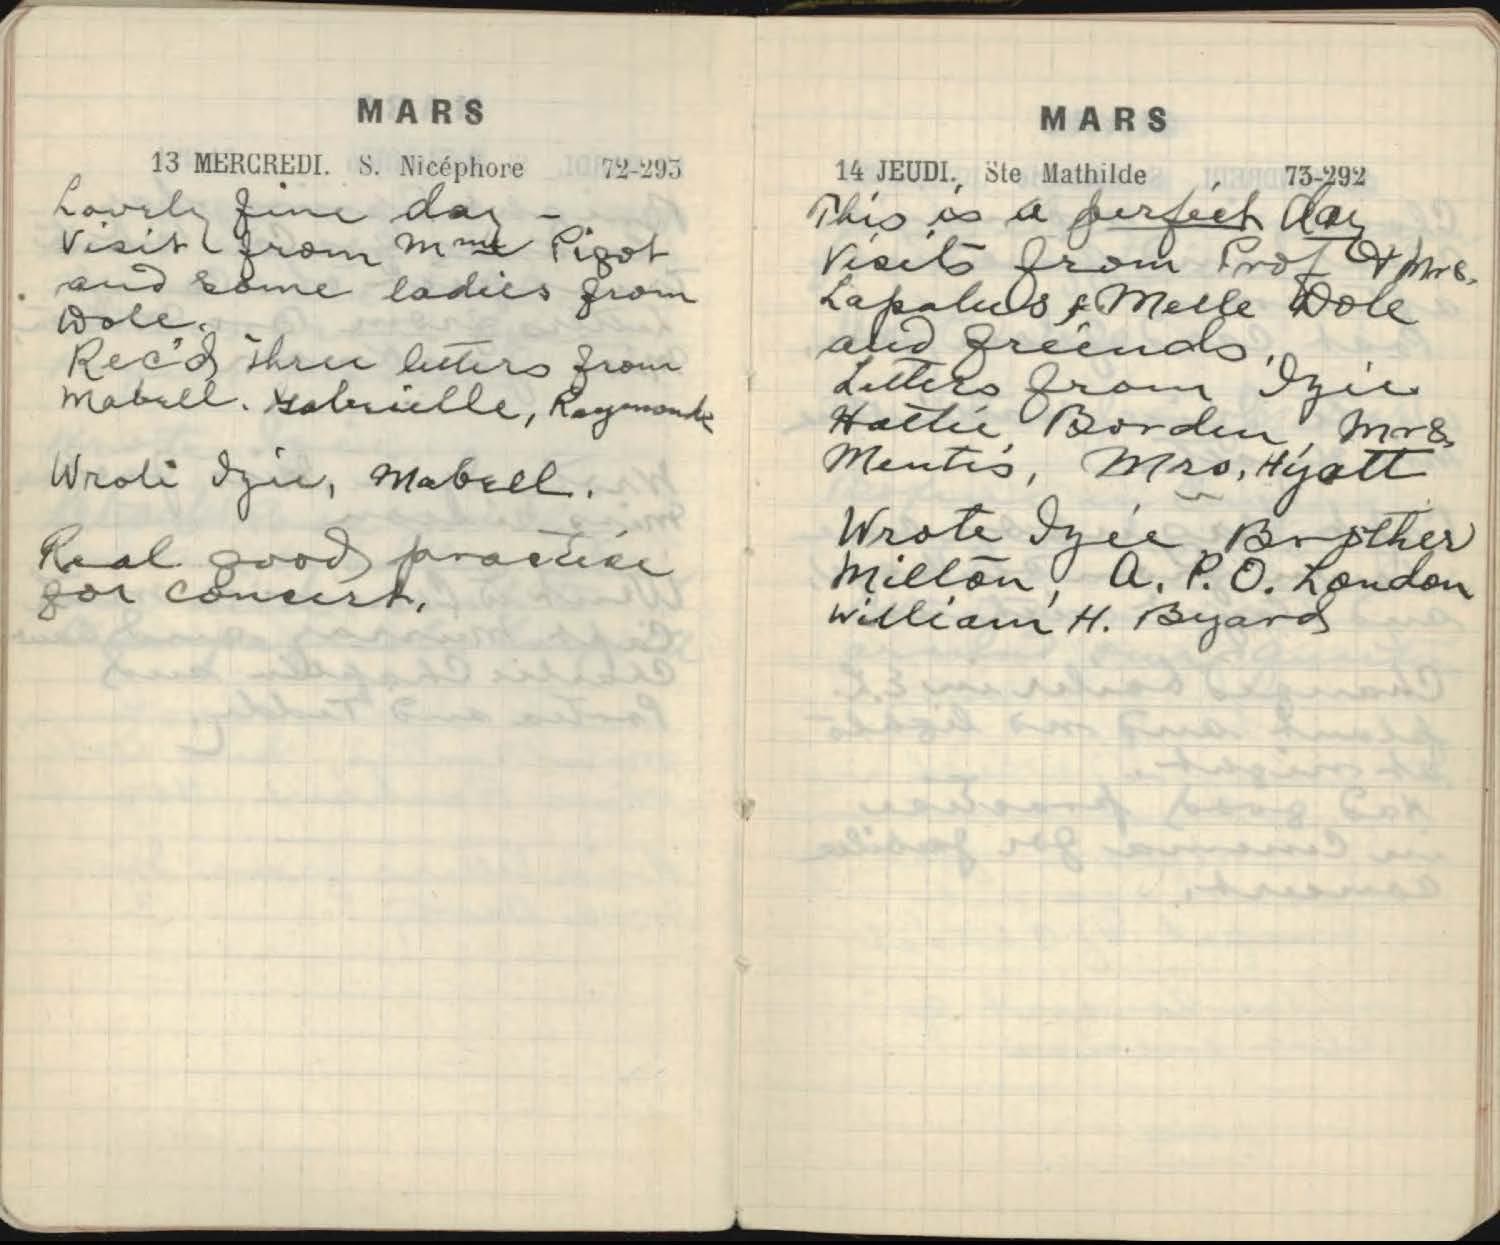 MARS
13 MERCREDI. S. Nicéphore 72-293
Lovely fine day -
Visit from Mme Pigot
and some ladies from
Dole.
Rec'd three letters from
Mabell. Gabrielle, Raymonde
Wrote Izie, Mabell.
Real good practice
for concert.
MARS
14 JEUDI. Ste Mathilde 73-292
This is a perfect day
Visits from Prof & Mrs.
Lapalus & Melle Dole
and friends.
Letters from Izie
Hattie Borden, Mrs.
Mentis, Mrs. Hyatt
Wrote Izie Brother
Milton, A. P. O. London
William H. Byard